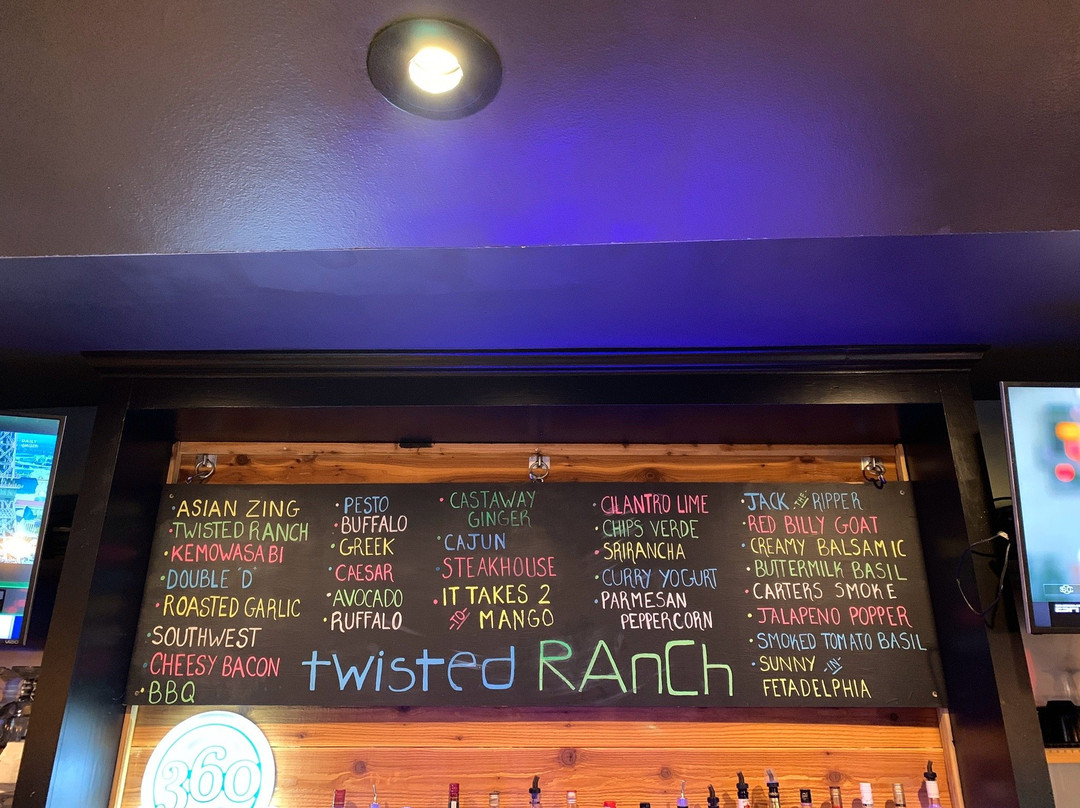 • ASIAN ZING
• TWISTED RANCH
• KEMOWASABI
• DOUBLE 'D'
• ROASTED GARLIC
• SOUTHWEST
• CHEESY BACON
• BBQ
• PESTO
• BUFFALO
• GREEK
• CAESAR
• AVOCADO
• RUFFALO
• CASTAWAY
GINGER
• CAJUN
• STEAKHOUSE
• IT TAKES 2
TO MANGO
• CILANTRO LIME
• CHIPS VERDE
• SRIRANCHA
• CURRY YOGURT
• PARMESAN
PEPPERCORN
• JACK THE RIPPER
• RED BILLY GOAT
• CREAMY BALSAMIC
• BUTTERMILK BASIL
• CARTERS SMOKE
• JALAPENO POPPER
• SMOKED TOMATO BASIL
• SUNNY IN
FETADELPHIA
twisted RAnCh
360